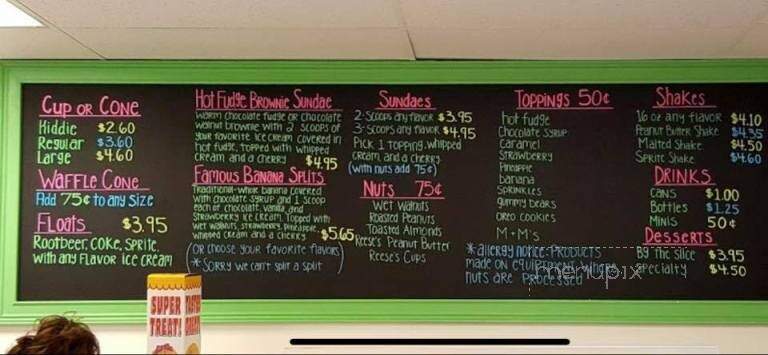 CUP OR CONE
Kiddie $2.60
Regular $3.60
Large $4.60
WAFFLE CONE
Add 75¢ to any SIZE
FLOATS $3.95
ROOTBEER, COKE, SPRITE,
WITH ANY FLAVOR ICE CREAM
HOT FUDGE BROWNIE SUNDAE
WARM CHOCOLATE FUDGE OR CHOCOLATE
WALNUT BROWNIE WITH 2 SCOOPS OF
YOUR FAVORITE ICE CREAM COVERED IN
HOT FUDGE, TOPPED WITH WHIPPED
CREAM AND A CHERRY $4.95
FAMOUS BANANA SPLITS
TRADITIONAL-WHOLE BANANA COVERED
WITH CHOCOLATE SYRUP AND 1 SCOOP
EACH OF CHOCOLATE, VANILLA, AND
STRAWBERRY ICE CREAM. TOPPED WITH
WET WALNUTS, STRAWBERRY, PINEAPPLE,
WHIPPED CREAM AND A CHERRY $5.65
(OR CHOOSE YOUR FAVORITE FLAVORS)
* SORRY WE CAN'T SPLIT A SPLIT
SUNDAES
2-SCOOPS ANY FLAVOR $3.95
3-SCOOPS ANY FLAVOR $4.95
PICK 1 TOPPING, WHIPPED
CREAM, AND A CHERRY
(WITH NUTS ADD 75¢)
NUTS 75¢
WET WALNUTS
ROASTED PEANUTS
TOASTED ALMONDS
REESE'S PEANUT BUTTER
REESE'S CUPS
TOPPINGS 50¢
HOT FUDGE
CHOCOLATE SYRUP
CARAMEL
STRAWBERRY
PINEAPPLE
BANANA
SPRINKLES
GUMMY BEARS
OREO COOKIES
M+M'S
*ALLERGY NOTICE: PRODUCTS
MADE ON EQUIPMENT WHERE
NUTS ARE PROCESSED
SHAKES
16 OZ ANY FLAVOR $4.10
PEANUT BUTTER SHAKE $4.35
MALTED SHAKE $4.50
SPRITE SHAKE $4.60
DRINKS
CANS $1.00
BOTTLES $1.25
MINIS 50¢
DESSERTS
BY THE SLICE $3.95
SPECIALTY $4.50
menupix
SUPER
TREAT!